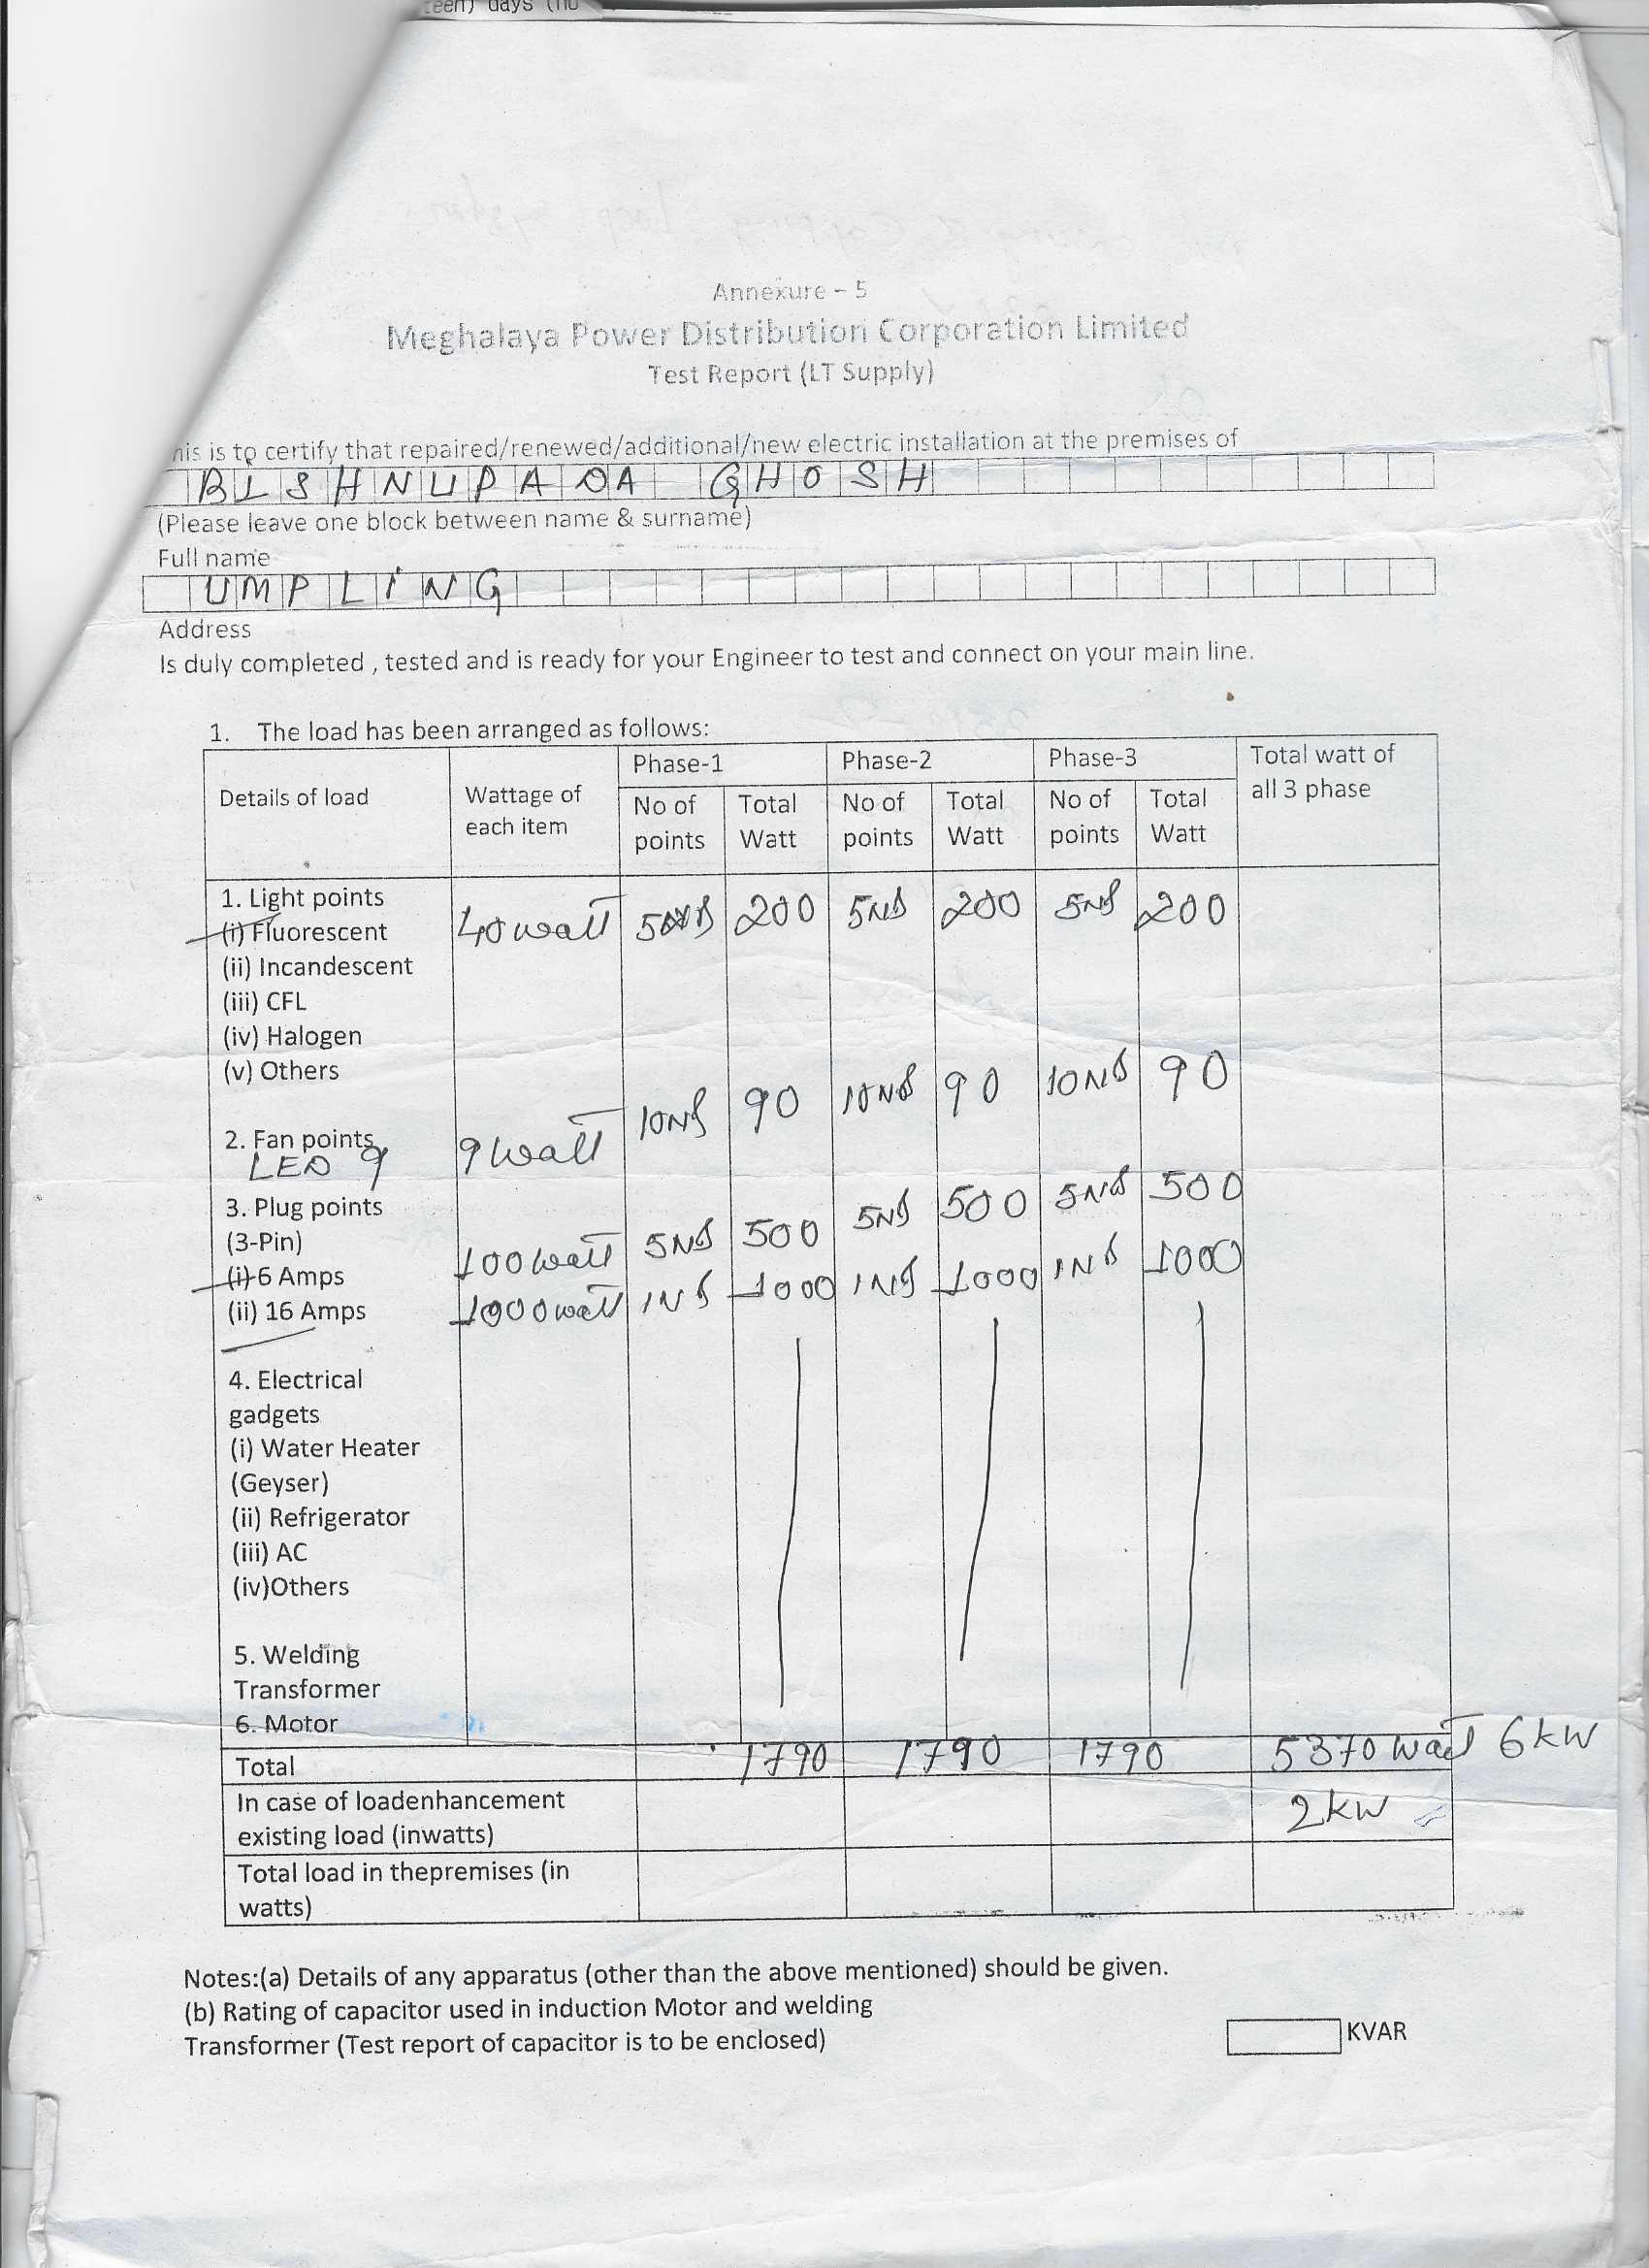 teen) days (no
Annexure – 5
Meghalaya Power Distribution Corporation Limited
Test Report (LT Supply)
his is to certify that repaired/renewed/additional/new electric installation at the premises of
BISHNUPADA GHOSH
(Please leave one block between name & surname)
Full name
UMPLING
Address
Is duly completed , tested and is ready for your Engineer to test and connect on your main line.
1. The load has been arranged as follows:
Details of load Wattage of each item Phase-1 Phase-2 Phase-3 Total watt of all 3 phase
No of points Total Watt No of points Total Watt No of points Total Watt
1. Light points
(i) Fluorescent 40 watt 5NS 200 5NS 200 5NS 200
(ii) Incandescent
(iii) CFL
(iv) Halogen
(v) Others
2. Fan points 9 watt 10NS 90 10NS 90 10NS 90
LED 9
3. Plug points
(3-Pin)
(i) 6 Amps 100 watt 5NS 500 5NS 500 5NS 500
(ii) 16 Amps 1000 watt 1NS 1000 1NS 1000 1NS 1000
4. Electrical
gadgets
(i) Water Heater
(Geyser)
(ii) Refrigerator
(iii) AC
(iv)Others
5. Welding
Transformer
6. Motor
Total 1790 1790 1790 5370 watt 6 kW
In case of loadenhancement
existing load (inwatts) 2 kW
Total load in thepremises (in
watts)
Notes:(a) Details of any apparatus (other than the above mentioned) should be given.
(b) Rating of capacitor used in induction Motor and welding
Transformer (Test report of capacitor is to be enclosed) KVAR